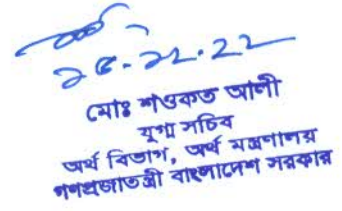 ২৫-১২-২২
মোঃ শওকত আলী
যুগ্ম সচিব
অর্থ বিভাগ, অর্থ মন্ত্রণালয়
গণপ্রজাতন্ত্রী বাংলাদেশ সরকার